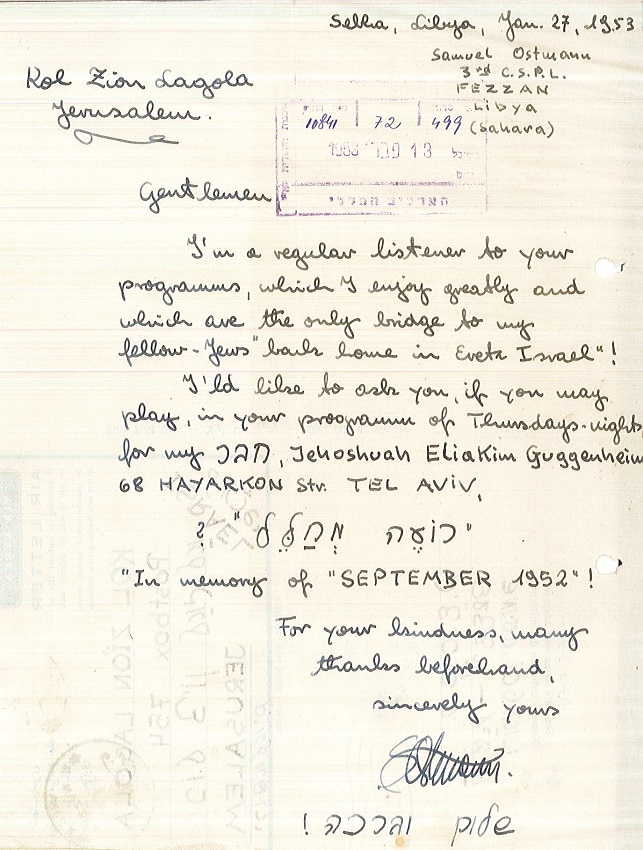 Sebha, Libya, Jan. 27, 1953
Samuel Ostmann
3rd C.S.P.L.
FEZZAN
Libya
(Sahara)
Kol Zion Lagola
Jerusalem.
10841 72 499
1953 פבר 13
הארכיון המרכזי
Gentlemen
I'm a regular listener to your
programms, which I enjoy greatly and
which are the only bridge to my
fellow-Jews "back home in Eretz Israel"!
I'ld like to ask you, if you may
play, in your programm of Thursdays-nights
for my חבר, Jehoshuah Eliakim Guggenheim
68 HAYARKON Str. TEL AVIV,
"רועה מְחַלֵל" ?
"In memory of "SEPTEMBER 1952"!
For your kindness, many
thanks beforehand,
sincerely yours
SOstmann.
שלום וברכה!